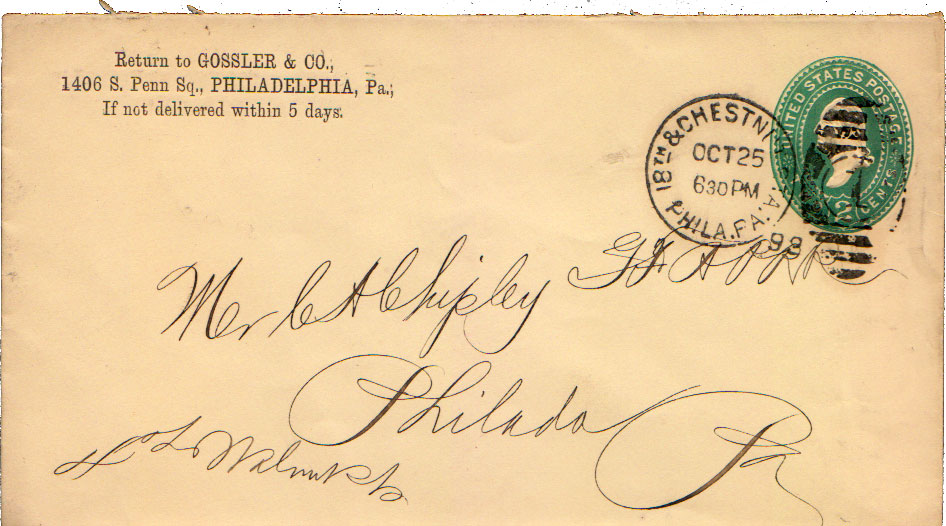 Return to GOSSLER & CO.,
1406 S. Penn Sq., PHILADELPHIA, Pa.,
If not delivered within 5 days.
UNITED STATES POSTAGE
2 CENTS
18TH & CHESTNUT
OCT 25
630 PM
PHILA. PA.
93
Mr C A Chipley
Philada
Pa
Walnut St